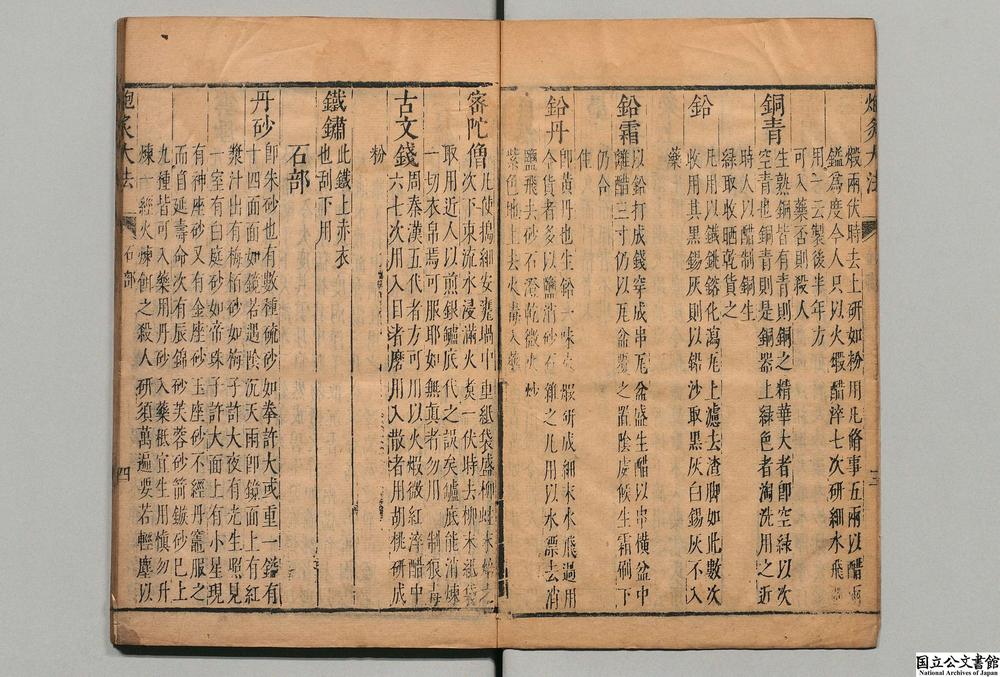 炮炙大法
煅兩伏時去上研如粉用凡脩事五兩以醋兩
鎰為度今人只以火煅醋淬七次研細水飛
用一云製後半年方
可入藥否則殺人
銅青
生熟銅皆有青則銅之精華大者即空綠以次
空青也銅青則是銅器上綠色者淘洗用之近
時人以醋制銅生
綠取收晒乾貨之
鉛
凡用以鐵銚鎔化瀉瓦上濾去渣脚如此數次
收用其黑錫灰則以鉛沙取黑灰白錫灰不入
藥
鉛霜
以鉛打成錢穿成串瓦盆盛生醋以串橫盆中
離醋三寸仍以瓦盆覆之置陰處候生霜刷下
仍合
住
鉛丹
即黃丹也生鉛一味火煅研成細末水飛過用
今貨者多以鹽消砂石雜之凡用以水漂去消
鹽飛去砂石澄乾微火炒
紫色地上去火毒入藥
三
密陀僧
凡使搗細安瓷堝中重紙袋盛柳蛀末焙之
次下東流水浸滿火煑一伏時去柳末紙袋
取用近人以煎銀罏底代之誤矣罏底能消煉
一切衣帛焉可服耶如無真者勿用制狼毒
古文錢
周秦漢五代者方可用以火煅微紅淬醋中
六七次用入目者磨用入散者用胡桃研成
粉
鐵鏽
此鐵上赤衣
也刮下用
石部
丹砂
即朱砂也有數種硫砂如拳許大或重一鎰有
十四面面如鏡若遇陰沉天雨即鏡面上有紅
漿汁出有梅栢砂如梅子許大夜有光生照見
一室有白庭砂如帝珠子許大面上有小星現
有神座砂又有金座砂玉座砂不經丹竈服之
而自延壽命次有辰錦砂芙蓉砂箭鏃砂已上
九種皆可入藥用丹砂入藥秪宜生用慎勿升
煉一經火煉餌之殺人研須萬遍要若輕塵以
炮炙大法
石部
四
国立公文書館
National Archives of Japan